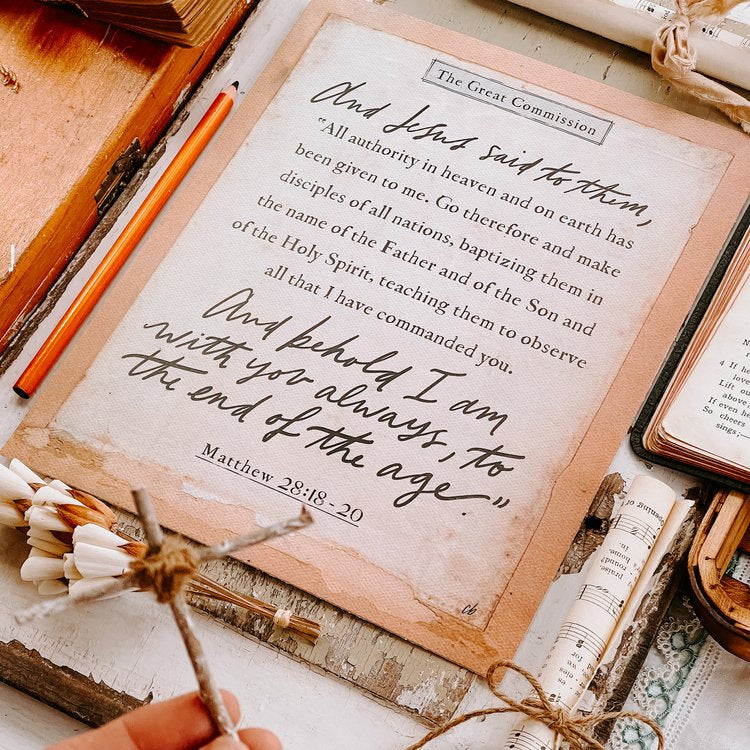 The Great Commission
And Jesus said to them,
"All authority in heaven and on earth has
been given to me. Go therefore and make
disciples of all nations, baptizing them in
the name of the Father and of the Son and
of the Holy Spirit, teaching them to observe
all that I have commanded you.
And behold I am
with you always, to
the end of the age."
Matthew 28:18-20
cb
4 If he
love
Lift ou
above,
If even he
So cheers
sing;